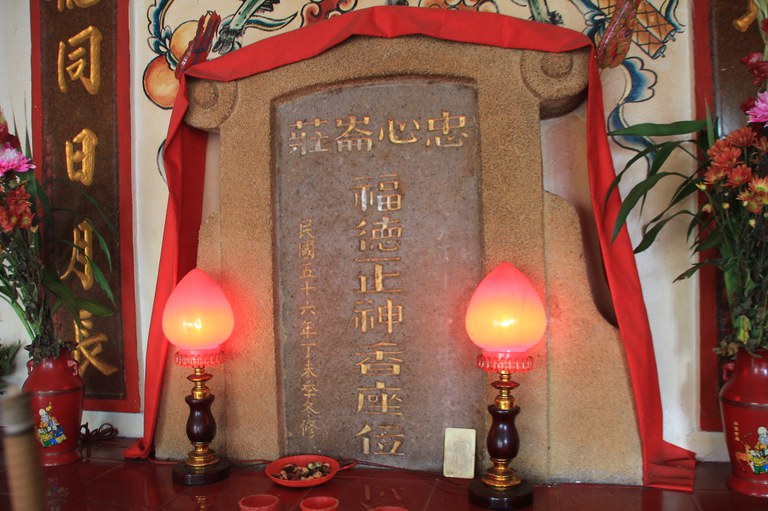 忠心崙莊
福德正神香座位
民國五十六年丁未癸冬修
同日月長